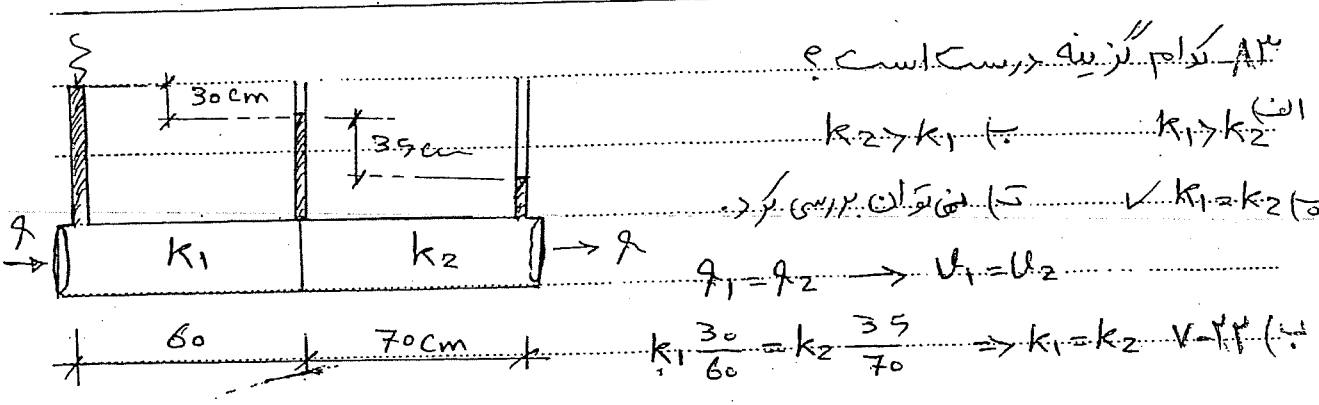 ۸۳- کدام گزینه درست است ؟
الف) k₁>k₂ ب) k₂>k₁
ج) k₁=k₂ ✓ د) نمی توان بررسی کرد.
q₁=q₂ → v₁=v₂
k₁ 30/60 = k₂ 35/70 ⇒ k₁=k₂
30cm
35cm
q → k₁ k₂ → q
60 70cm